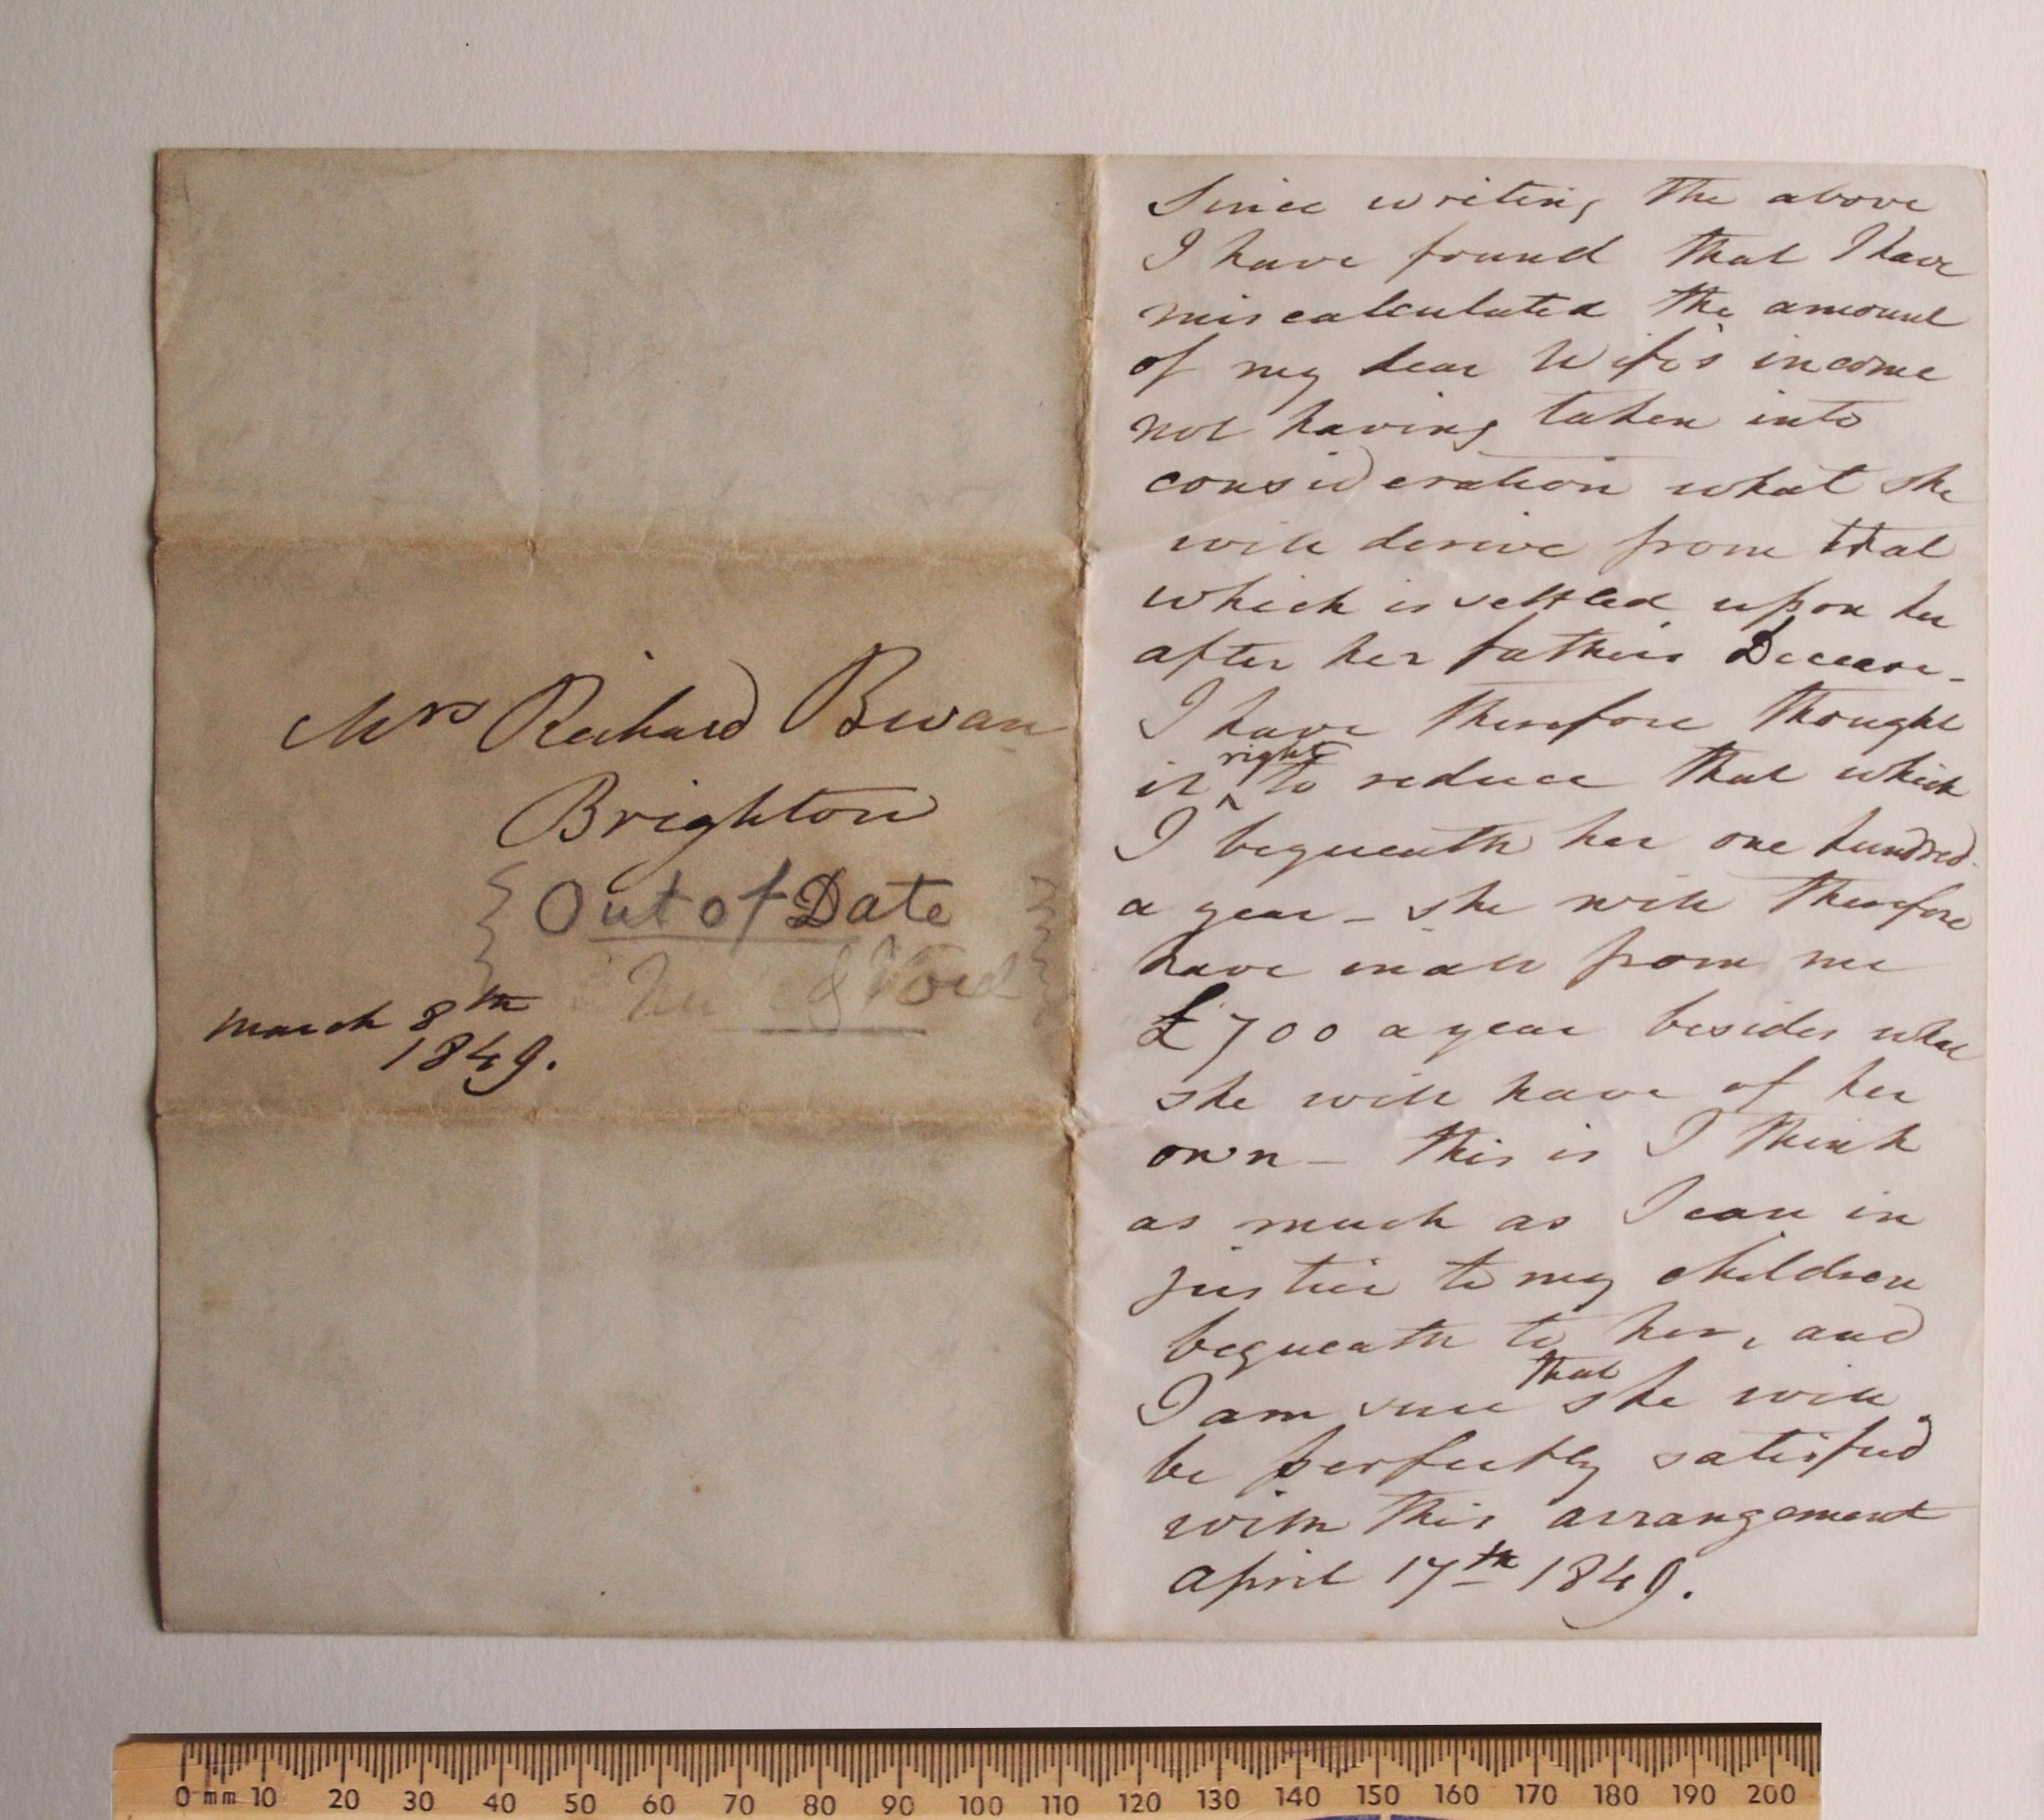 Mrs Richard Bevan
Brighton
Out of Date
& Void
March 8th
1849.
Since writing the above
I have found that I have
miscalculated the amount
of my dear Wife's income
not having taken into
consideration what she
will derive from that
which is settled upon her
after her fathers Decease -
I have therefore thought
right
it ^ to reduce that which
I bequeath her one hundred
a year - she will therefore
have in all from me
£700 a year besides what
she will have of her
own - this is I think
as much as I can in
justice to my children
bequeath to her, and
that
I am sure she will
be perfectly satisfied
with this arrangement
April 17th 1849.
0 mm 10 20 30 40 50 60 70 80 90 100 110 120 130 140 150 160 170 180 190 200